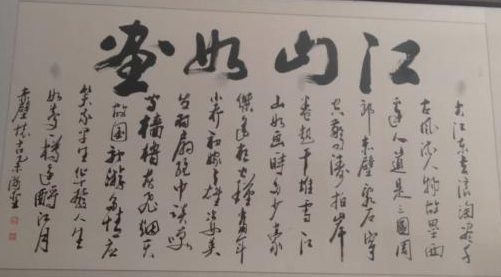 江山如画
大江东去浪淘尽千
古风流人物故垒西
边人道是三国周
郎赤壁乱石穿
空惊涛拍岸
卷起千堆雪江
山如画时多少豪
傑遥想公瑾当年
小乔初嫁了雄姿英
发羽扇纶巾谈笑
间樯橹灰飞烟灭
故国神游多情应
笑我早生华发人生
如梦一樽还酹江月
赤壁怀古